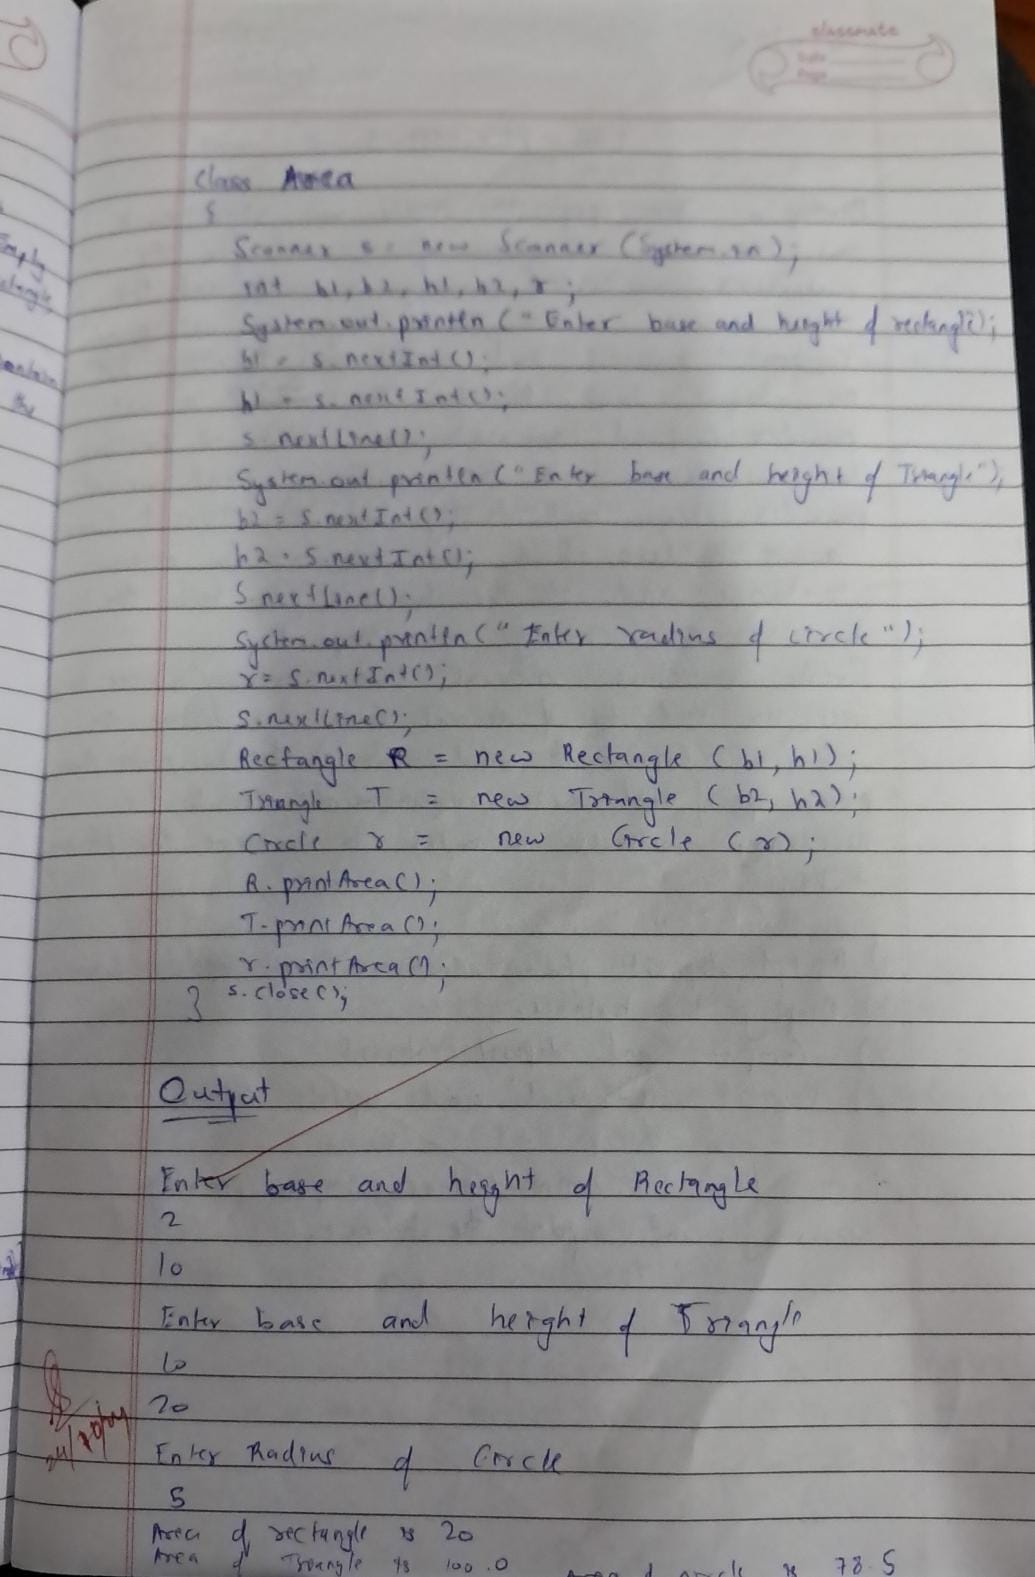 classmate
Date
Page
Class Area
{
Scanner s = new Scanner (System.in);
int b1, b2, h1, h2, r ;
System.out.println (" Enter base and height of rectangle);
b1 = s.nextInt();
h1 = s.nextInt();
s.nextLine();
System.out.println ("Enter base and height of Triangle");
b2 = s.nextInt();
h2 = s.nextInt();
s.nextLine();
System.out.println (" Enter radius of circle ");
r = s.nextInt();
s.nextLine();
Rectangle R = new Rectangle (b1, h1);
Triangle T = new Triangle (b2, h2);
Circle r = new Circle (r);
R.printArea();
T.printArea();
r.printArea();
} s.close();
Output
Enter base and height of Rectangle
2
10
Enter base and height of Triangle
10
20
Enter Radius of Circle
5
Area of rectangle is 20
Area of Triangle is 100.0 Area of circle is 78.5